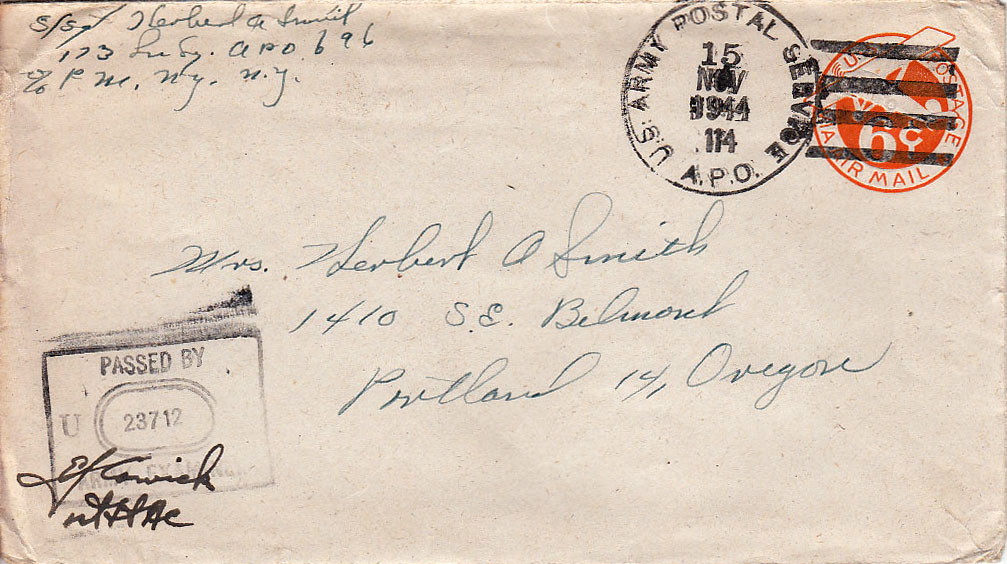 S/Sgt Herbert A Smith
APO 696
℅ P.M. Ny. N.Y.
U.S. ARMY POSTAL SERVICE
15
NOV
1944
114
A.P.O.
U.S. POSTAGE
6¢
VIA AIR MAIL
Mrs. Herbert A Smith
1410 S.E. Belmont
Portland 14, Oregon
PASSED BY
U
23712
ARMY EXAMINER